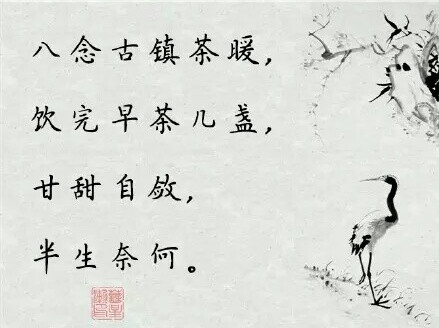 八念古镇茶暖,
饮完早茶几盏,
甘甜自敛,
半生奈何。